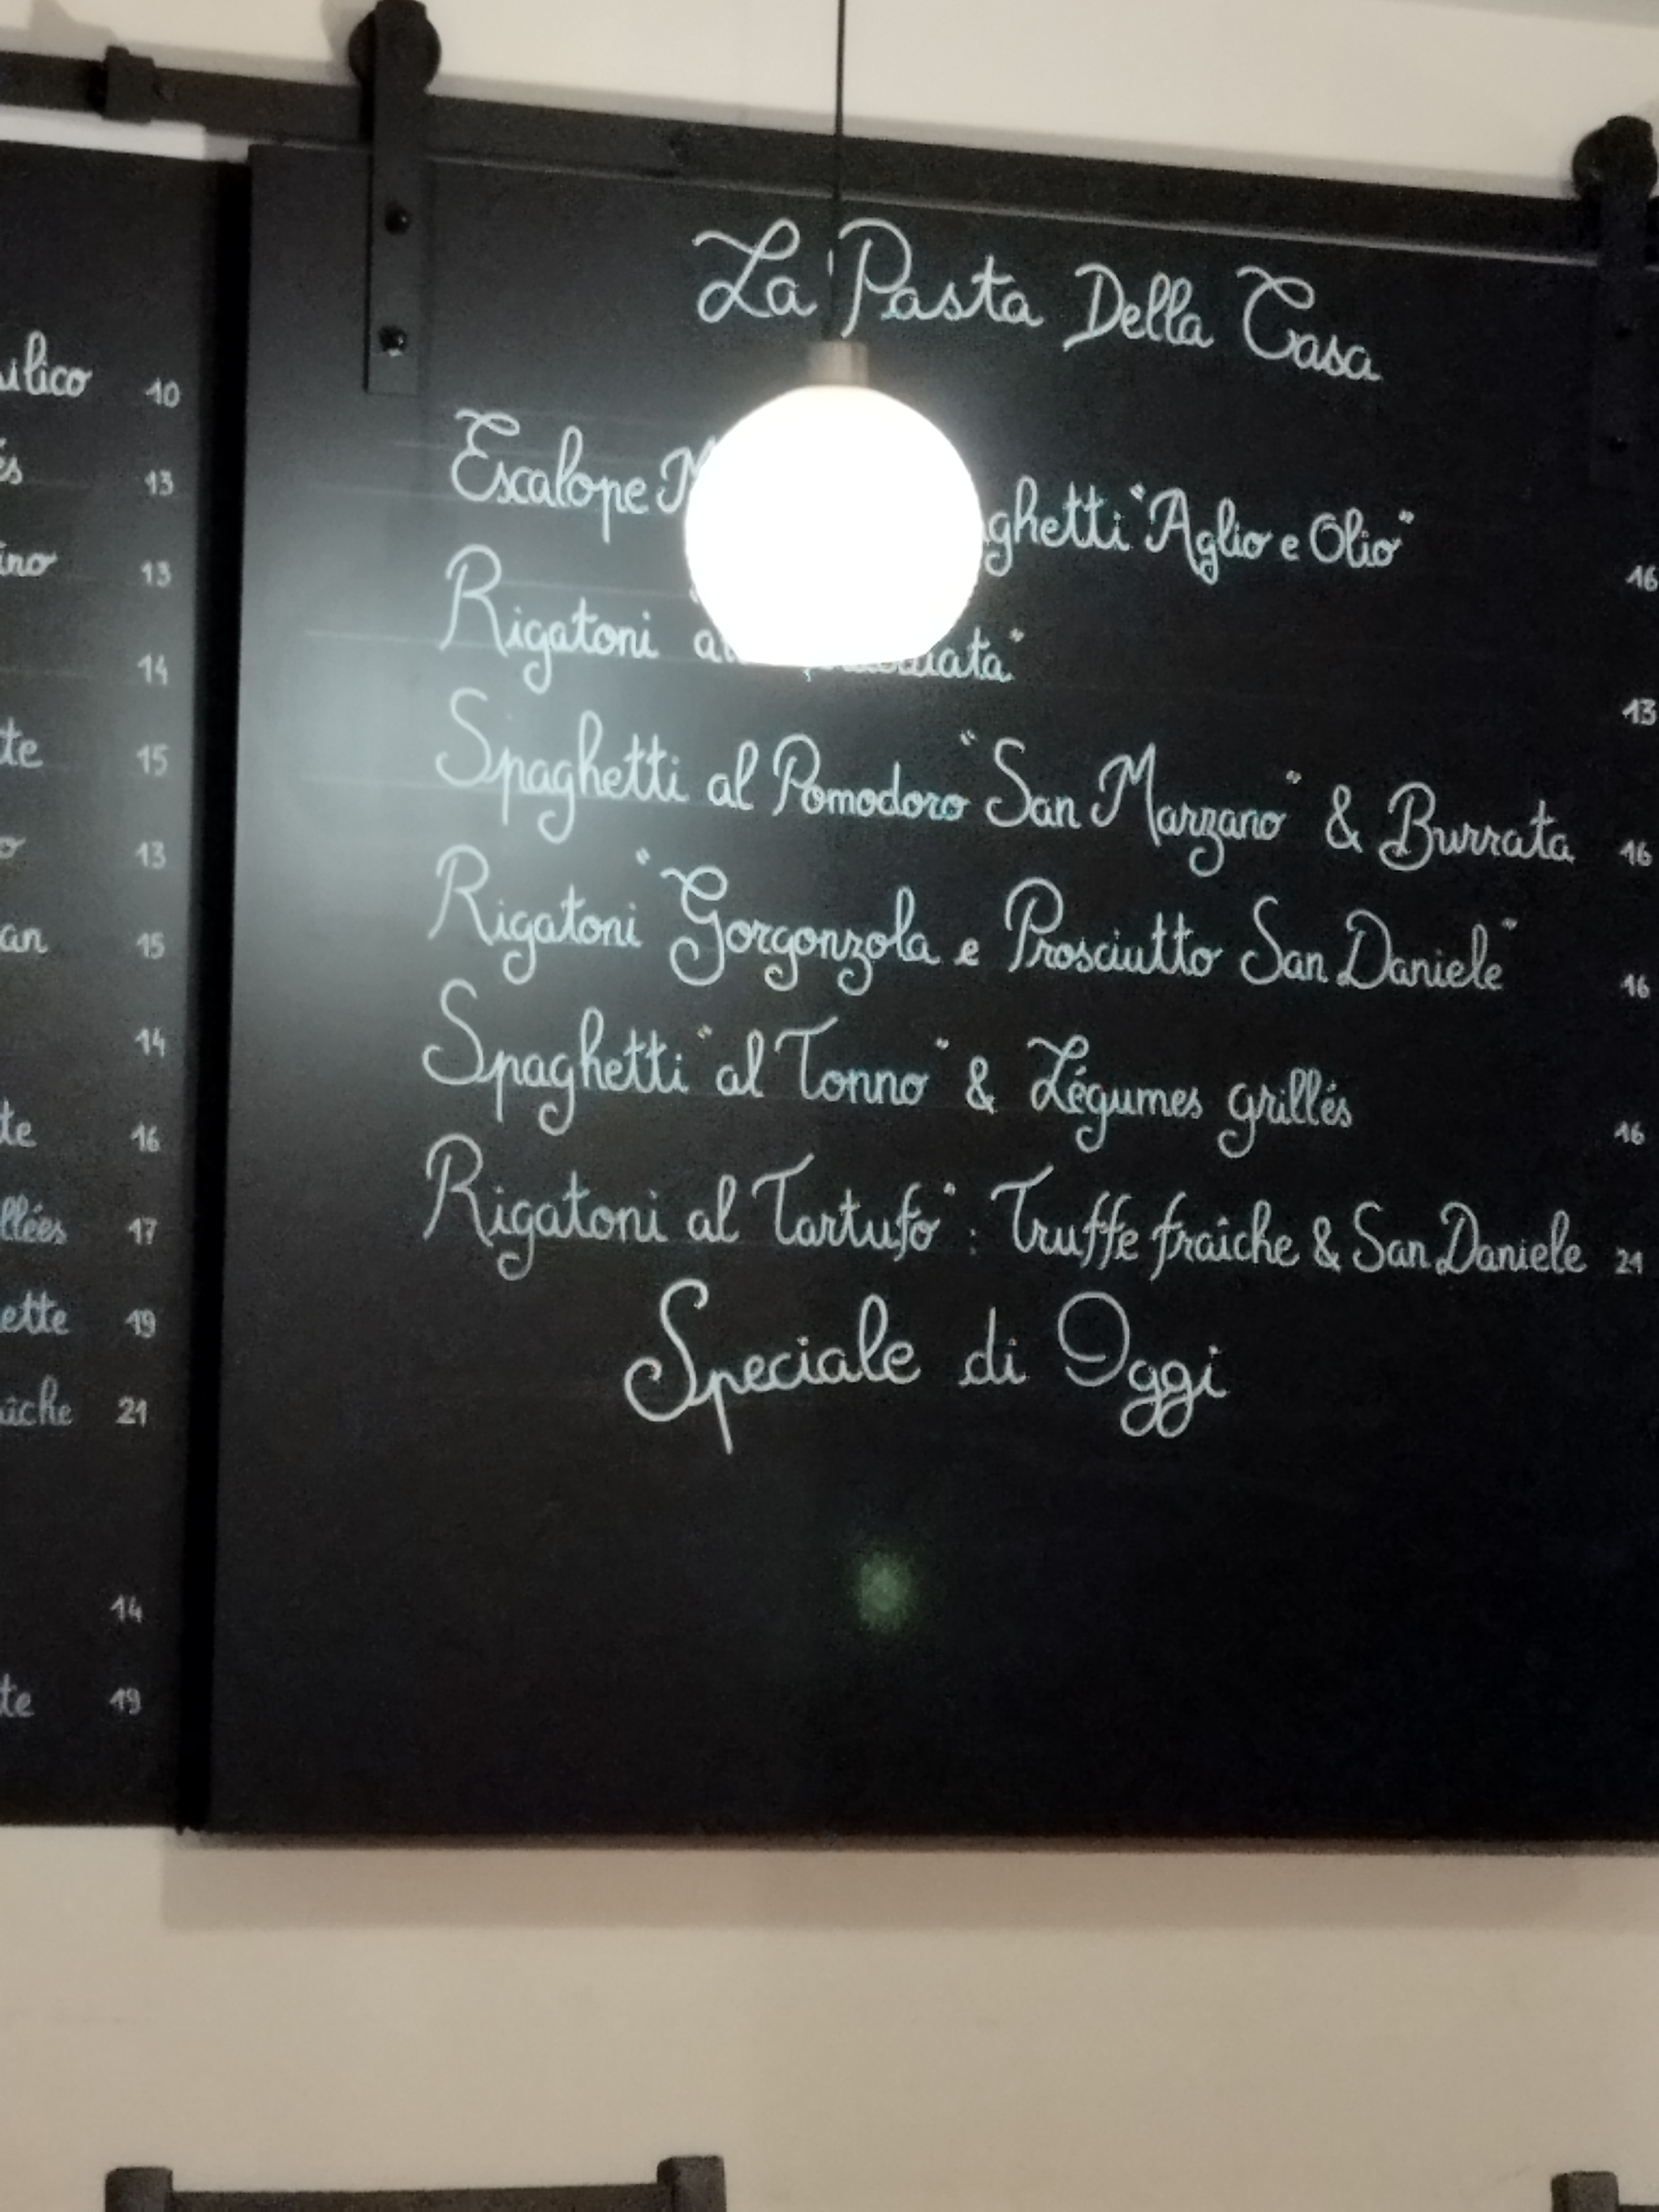 ilico 10
és 13
ino 13
14
te 15
o 13
an 15
14
te 16
llées 17
ette 19
aîche 21
14
te 19
La Pasta Della Casa
Escalope ghetti "Aglio e Olio" 16
Rigatoni iata" 13
Spaghetti al Pomodoro "San Marzano" & Burrata 16
Rigatoni "Gorgonzola e Prosciutto San Daniele" 16
Spaghetti "al Tonno" & Légumes grillés 16
Rigatoni al Tartufo" : Truffe fraîche & San Daniele 21
Speciale di Oggi